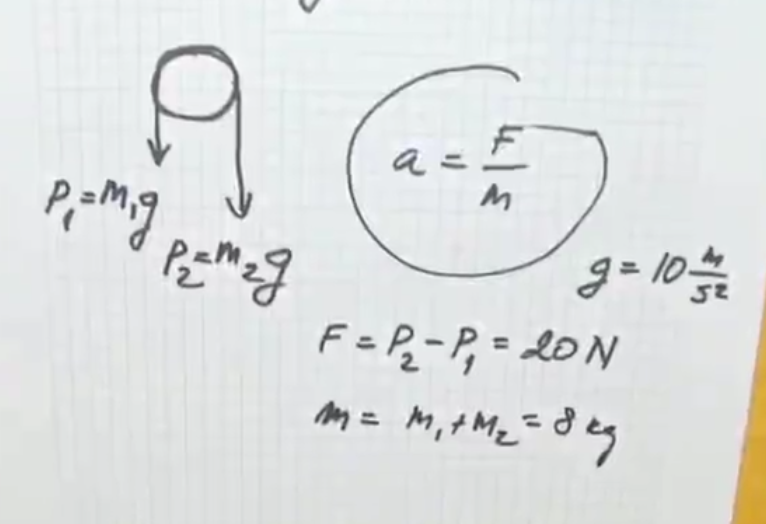 P₁ = m₁g
P₂ = m₂g
a = F/m
g = 10 m/s²
F = P₂ - P₁ = 20 N
m = m₁ + m₂ = 8 kg